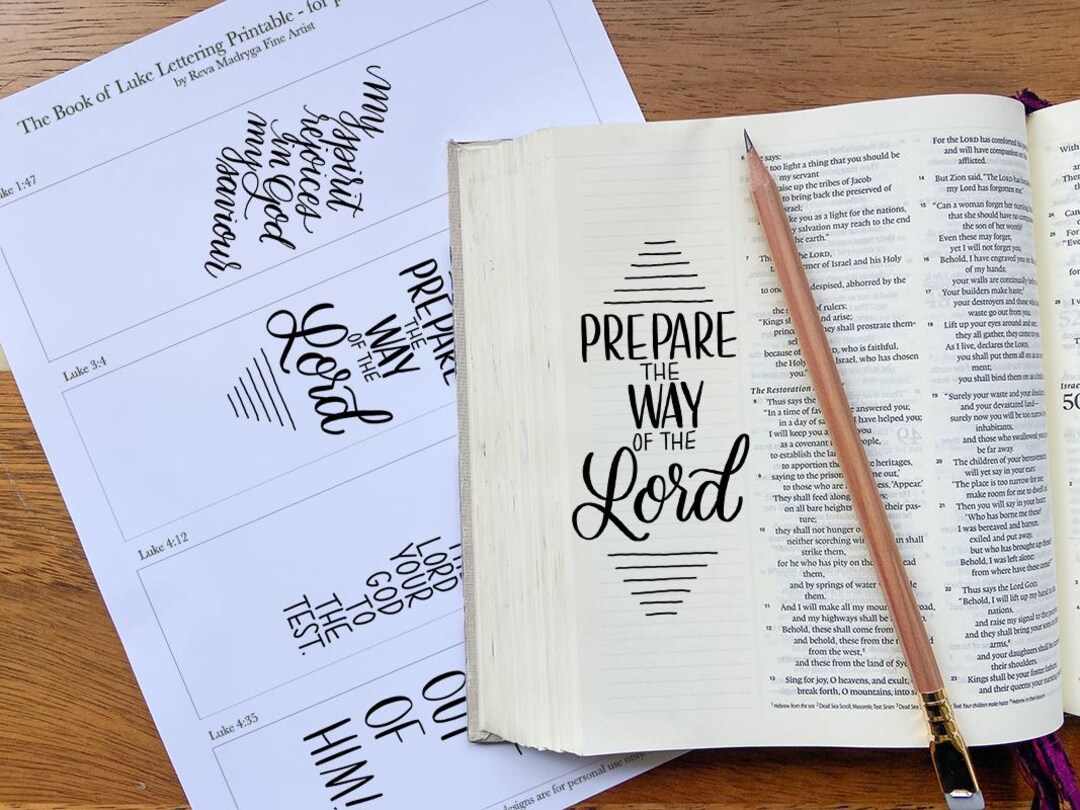 The Book of Luke Lettering Printable - for p
by Reva Madryga Fine Artist
ke 1:47
my
spirit
rejoices
in God
my
saviour
Luke 3:4
PREPARE
THE
WAY
OF THE
Lord
Luke 4:12
LORD
YOUR
GOD
TO
THE
TEST.
Luke 4:35
OUT
OF
HIM!
designs are for personal use only
PREPARE
THE
WAY
OF THE
Lord
says:
too light a thing that you should be
my servant
aise up the tribes of Jacob
to bring back the preserved of
srael;
ke you as a light for the nations,
y salvation may reach to the end
he earth."
7 Th the LORD,
emer of Israel and his Holy
to one despised, abhorred by the
the of rulers:
"Kings and arise;
princ they shall prostrate them-
sel
because of D, who is faithful,
the Holy Israel, who has chosen
you."
The Restoration
8 Thus says the
"In a time of fav e answered you;
in a day of sa I have helped you;
I will keep you a you
as a covenant people,
to establish the la
to apportion the e heritages,
9 saying to the prison me out,'
to those who are ess, 'Appear.'
They shall feed along s;
on all bare heights their pas-
ture;
10 they shall not hunger o
neither scorching wi n shall
strike them,
for he who has pity on the ead
them,
and by springs of water e
them.
11 And I will make all my mou road,
and my highways shall be
12 Behold, these shall come from
and behold, these from the
from the west,
and these from the land of Sy
13 Sing for joy, O heavens, and exult,
break forth, O mountains, into
For the LORD has comforted his
and will have compassion on
afflicted.
14 But Zion said, "The LORD has
my Lord has forgotten me."
15 "Can a woman forget her nursing
that she should have no com
the son of her womb?
Even these may forget,
yet I will not forget you.
16 Behold, I have engraved you on
of my hands;
your walls are continually before
17 Your builders make haste;
your destroyers and those who
waste go out from you.
18 Lift up your eyes around and see;
they all gather, they come to you.
As I live, declares the LORD,
you shall put them all on as
ment;
you shall bind them on as
19 "Surely your waste and your
and your devastated land—
surely now you will be too narrow
inhabitants,
and those who swallowed you
be far away.
20 The children of your bereavement
will yet say in your ears:
'The place is too narrow for me;
make room for me to dwell
21 Then you will say in your heart:
'Who has borne me these?
I was bereaved and barren,
exiled and put away,
but who has brought up these?
Behold, I was left alone;
from where have these come?'"
22 Thus says the Lord GOD:
"Behold, I will lift up my hand
nations,
and raise my signal to the peoples;
and they shall bring your sons in
arms,
and your daughters shall be
their shoulders.
23 Kings shall be your foster fathers,
and their queens your nursing